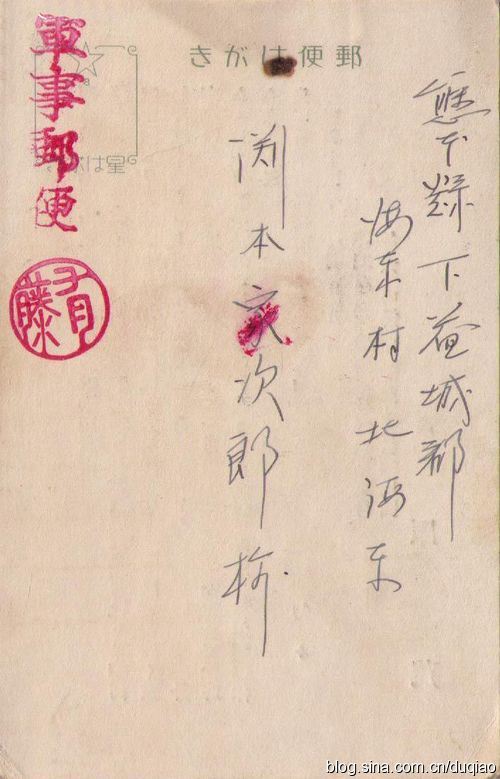 郵便はがき
熊本縣下益城郡
海東村北海東
渕本次郎様
軍事郵便
有藤
blog.sina.com.cn/duqiao